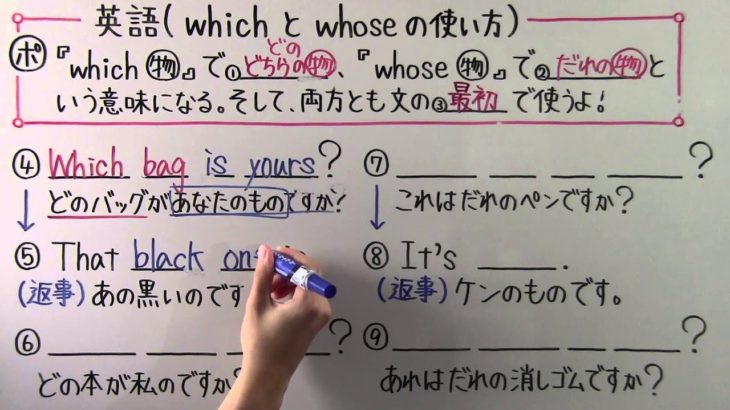 英語(whichとwhoseの使い方)
ポ『which物』で①どちらの物、『whose物』で②だれの物と
どの
いう意味になる。そして、両方とも文の③最初で使うよ!
④Which bag is yours?
どのバッグがあなたのものですか?
⑤That black
(返事)あの黒いのです
⑥?
どの本が私のですか?
⑦?
これはだれのペンですか?
⑧It's .
(返事)ケンのものです。
⑨?
あれはだれの消しゴムですか?